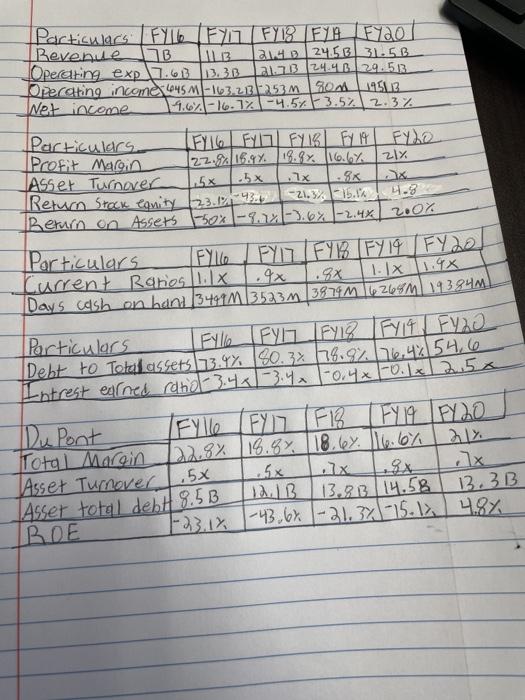 Particulars FY16 FY17 FY18 FY19 FY20
Revenue 7B 11B 21.4B 24.5B 31.5B
Operating exp 7.6B 13.3B 21.7B 24.4B 29.5B
Operating income -645M -163.2B -253M 80M 1951B
Net income -9.6% -16.7% -4.5% -3.5% 2.3%
Particulars FY16 FY17 FY18 FY19 FY20
Profit Margin 22.8% 18.9% 18.8% 16.6% 21%
Asset Turnover .5x .5x .7x .8x .7x
Return Stock equity -23.1% -43.6 -21.3% -15.1% 4.8
Return on Assets -50x -9.7% -3.6% -2.4% 2.0%
Particulars FY16 FY17 FY18 FY19 FY20
Current Ratios 1.1x .9x .8x 1.1x 1.9x
Days cash on hand 3499M 3523M 3879M 6268M 19384M
Particulars FY16 FY17 FY18 FY19 FY20
Debt to Total assets 73.4% 80.3% 78.9% 76.4% 54.6
Intrest earned ratio -3.4x -3.4x -0.4x -0.1x 2.5x
Du Pont FY16 FY17 F18 FY19 FY20
Total Margin 22.8% 18.8% 18.6% 16.6% 21%
Asset Turnover .5x .5x .7x .8x .7x
Asset total debt 8.5B 12.1B 13.8B 14.5B 13.3B
ROE -23.1% -43.6% -21.3% -15.1% 4.8%